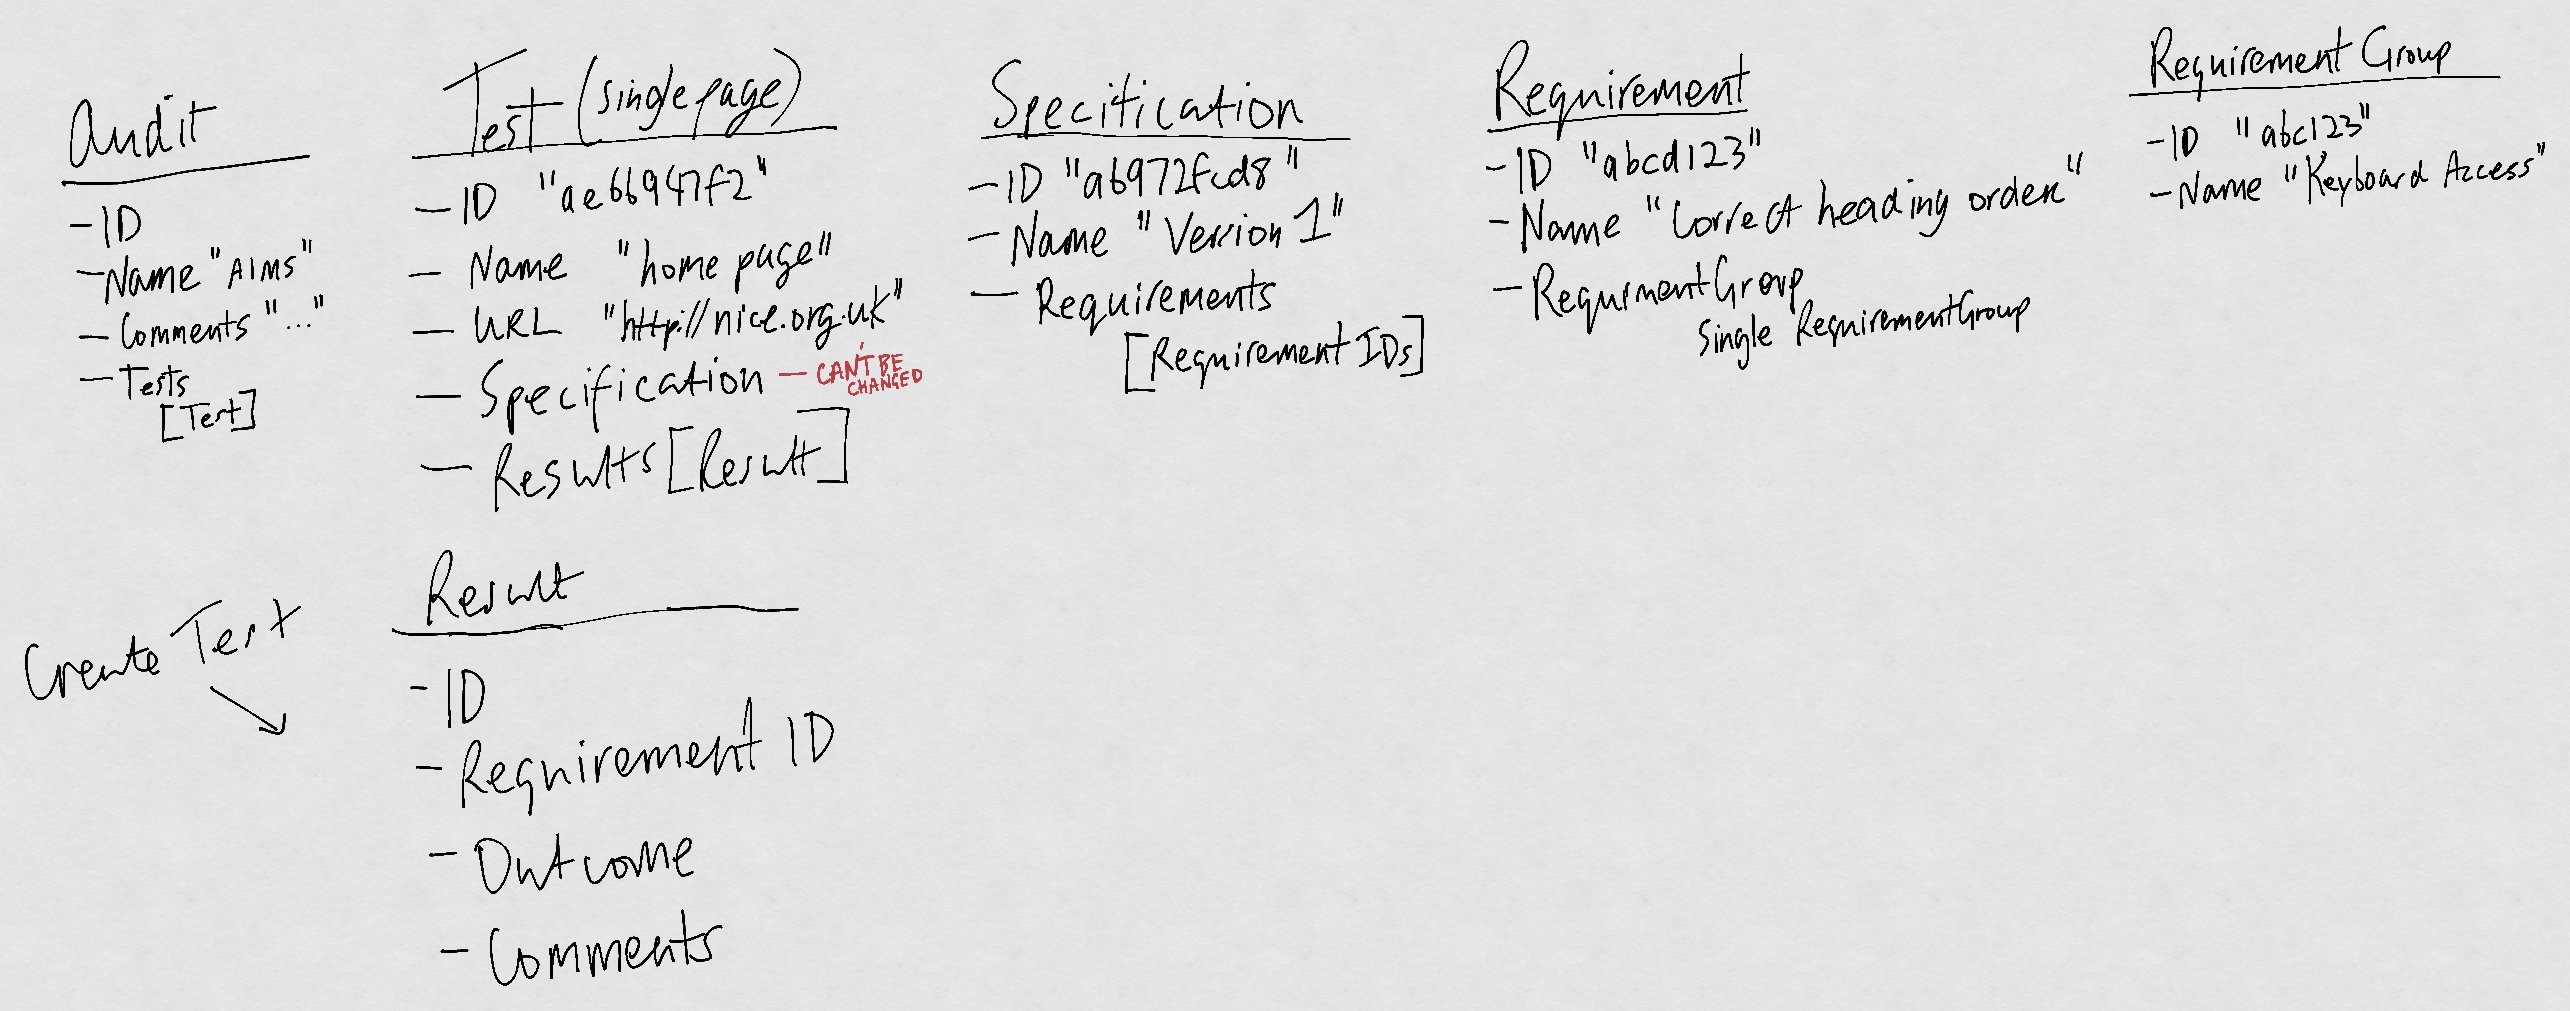 Audit
- ID
- Name "AIMS"
- Comments "..."
- Tests
[Test]
Test (single page)
- ID "ae66947f2"
- Name "home page"
- URL "http://nice.org.uk"
- Specification - CAN'T BE
CHANGED
- Results [Result]
Specification
- ID "a6972fcd8"
- Name "Version 1"
- Requirements
[Requirement IDs]
Requirement
- ID "abcd123"
- Name "Correct heading order"
- RequirmentGroup
Single RequirementGroup
Requirement Group
- ID "abc123"
- Name "Keyboard Access"
Create Test
Result
- ID
- Requirement ID
- Outcome
- Comments